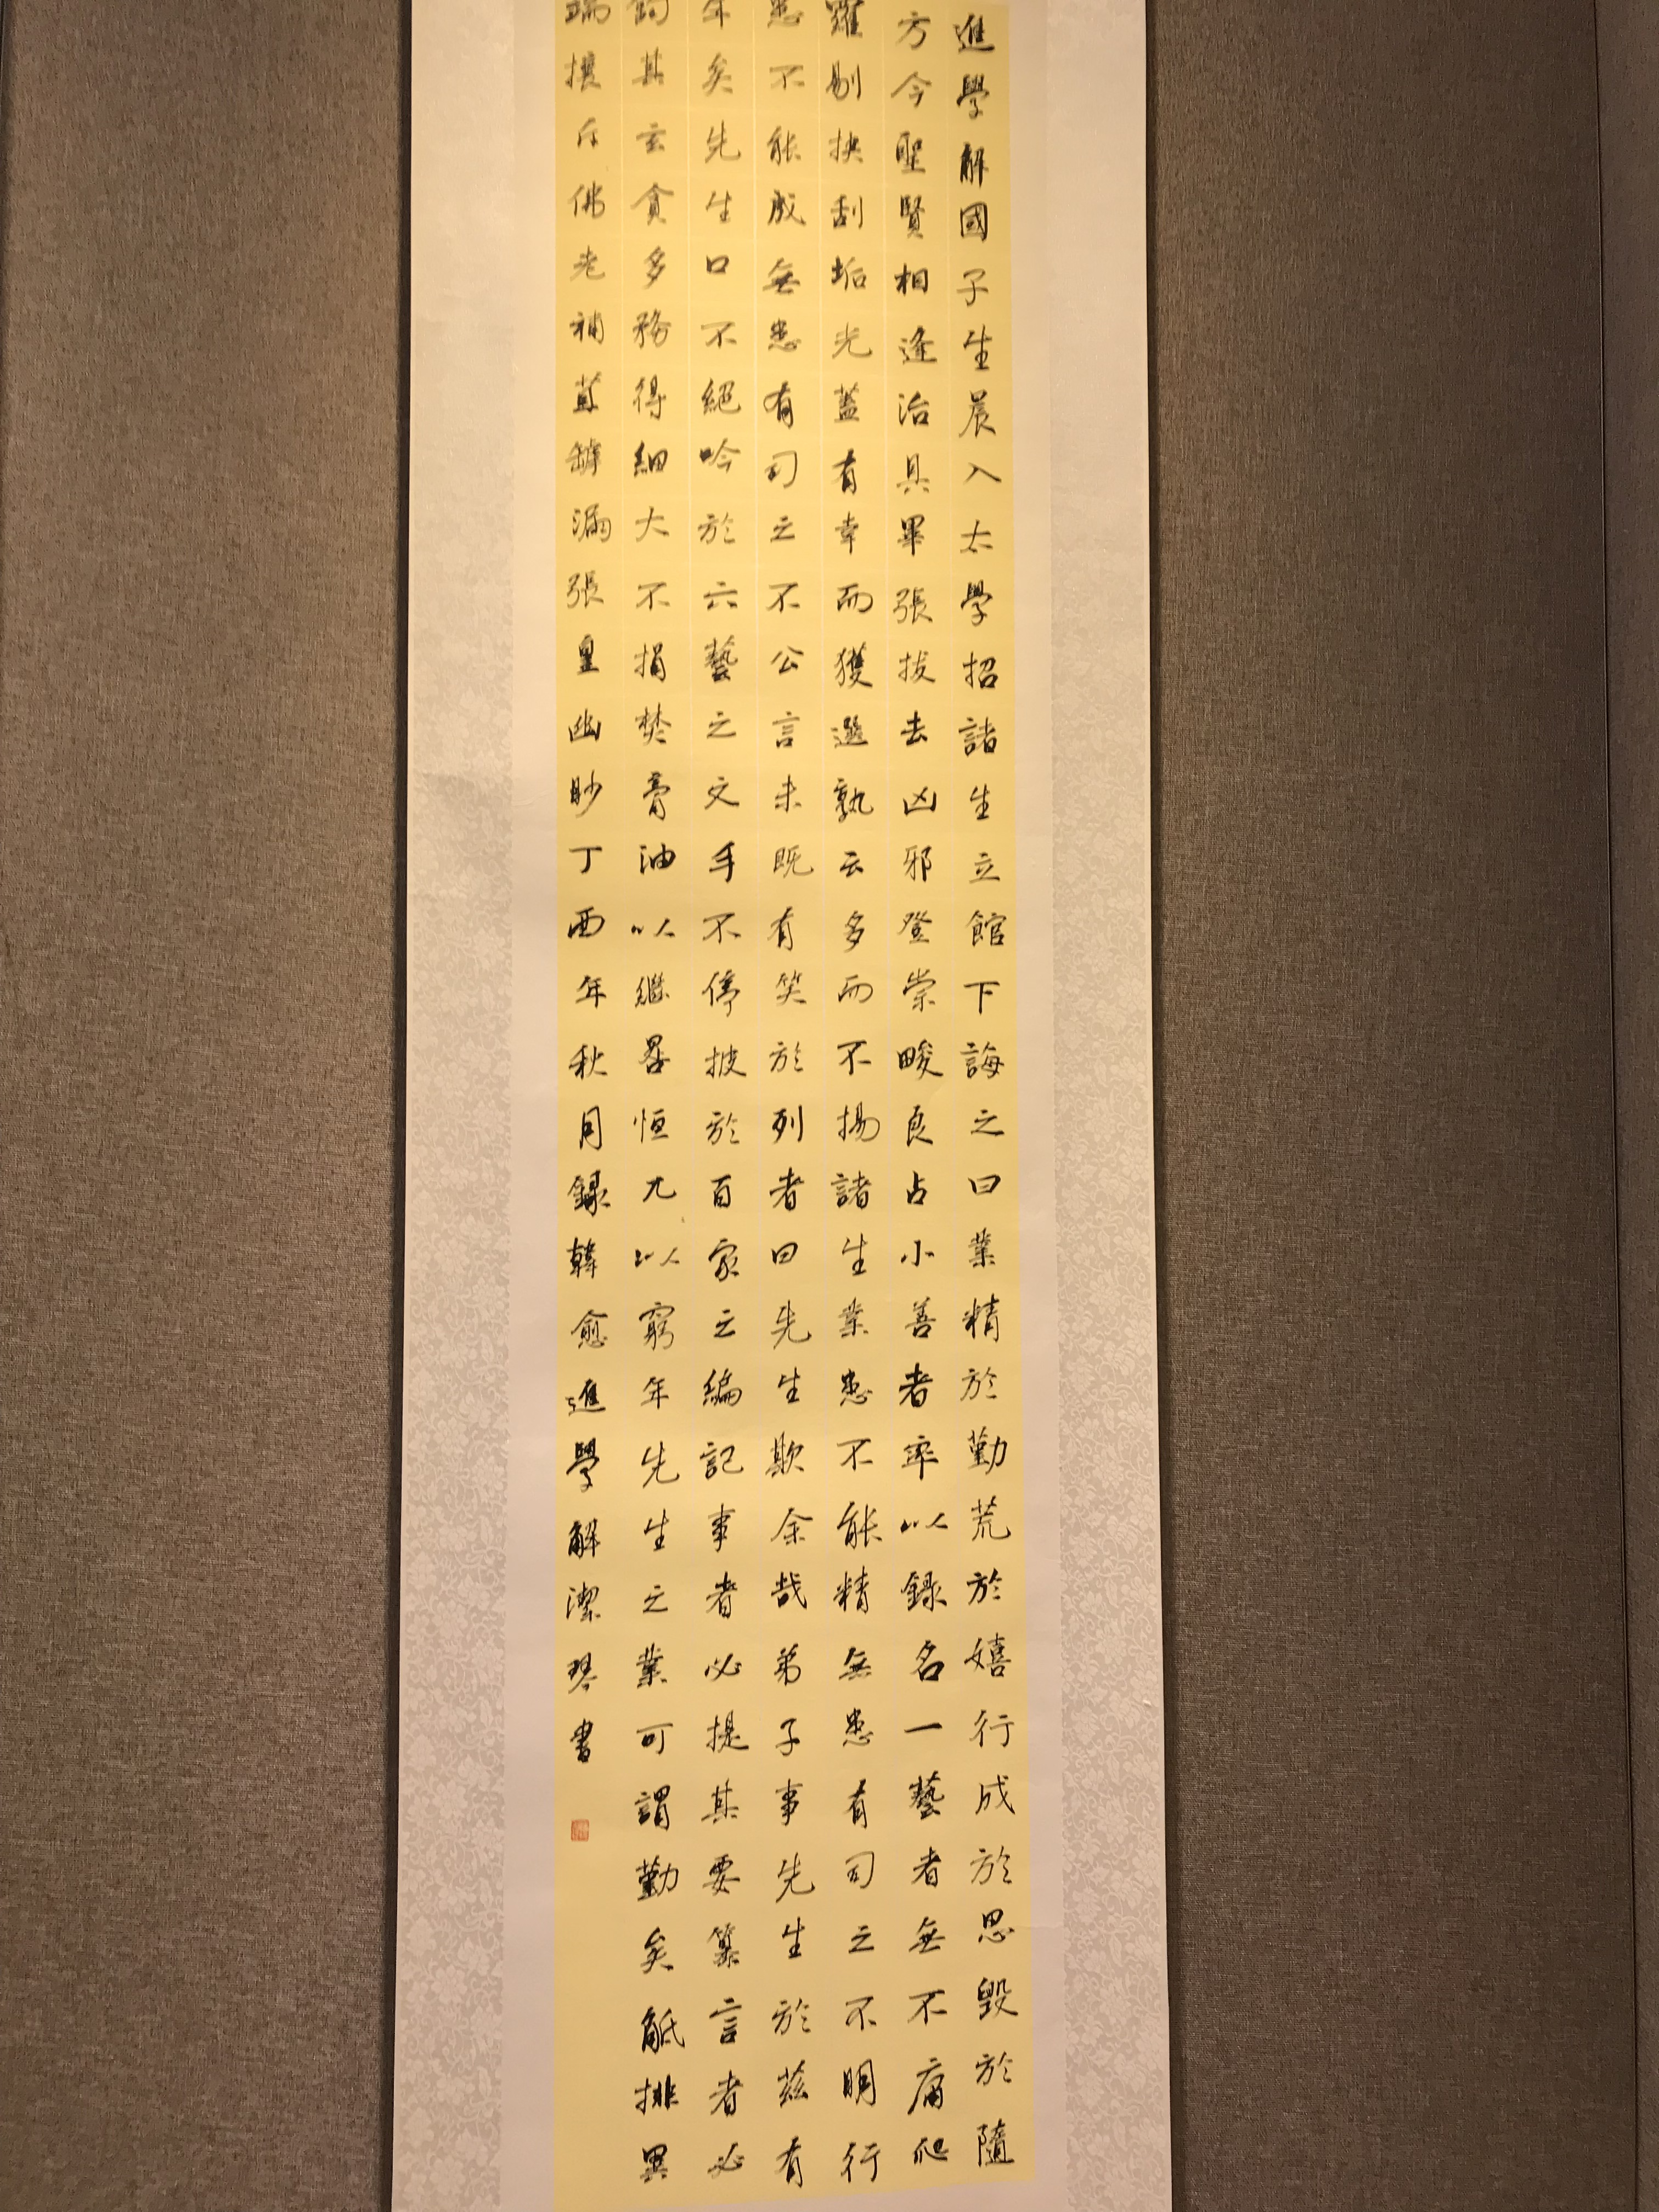 進學解國子生晨入太學招諸生立館下誨之曰業精於勤荒於嬉行成於思毀於隨
方今聖賢相逢治具畢張拔去凶邪登崇畯良占小善者率以錄名一藝者無不庸爬
羅剔抉刮垢光蓋有幸而獲選孰云多而不揚諸生業患不能精無患有司之不明行
患不能成無患有司之不公言未既有笑於列者曰先生欺余哉弟子事先生於茲有
年矣先生口不絕吟於六藝之文手不停披於百家之編記事者必提其要纂言者必
鉤其玄貪多務得細大不捐焚膏油以繼晷恒兀以窮年先生之業可謂勤矣觝排異
端攘斥佛老補苴罅漏張皇幽眇丁酉年秋月錄韓愈進學解潔琴書